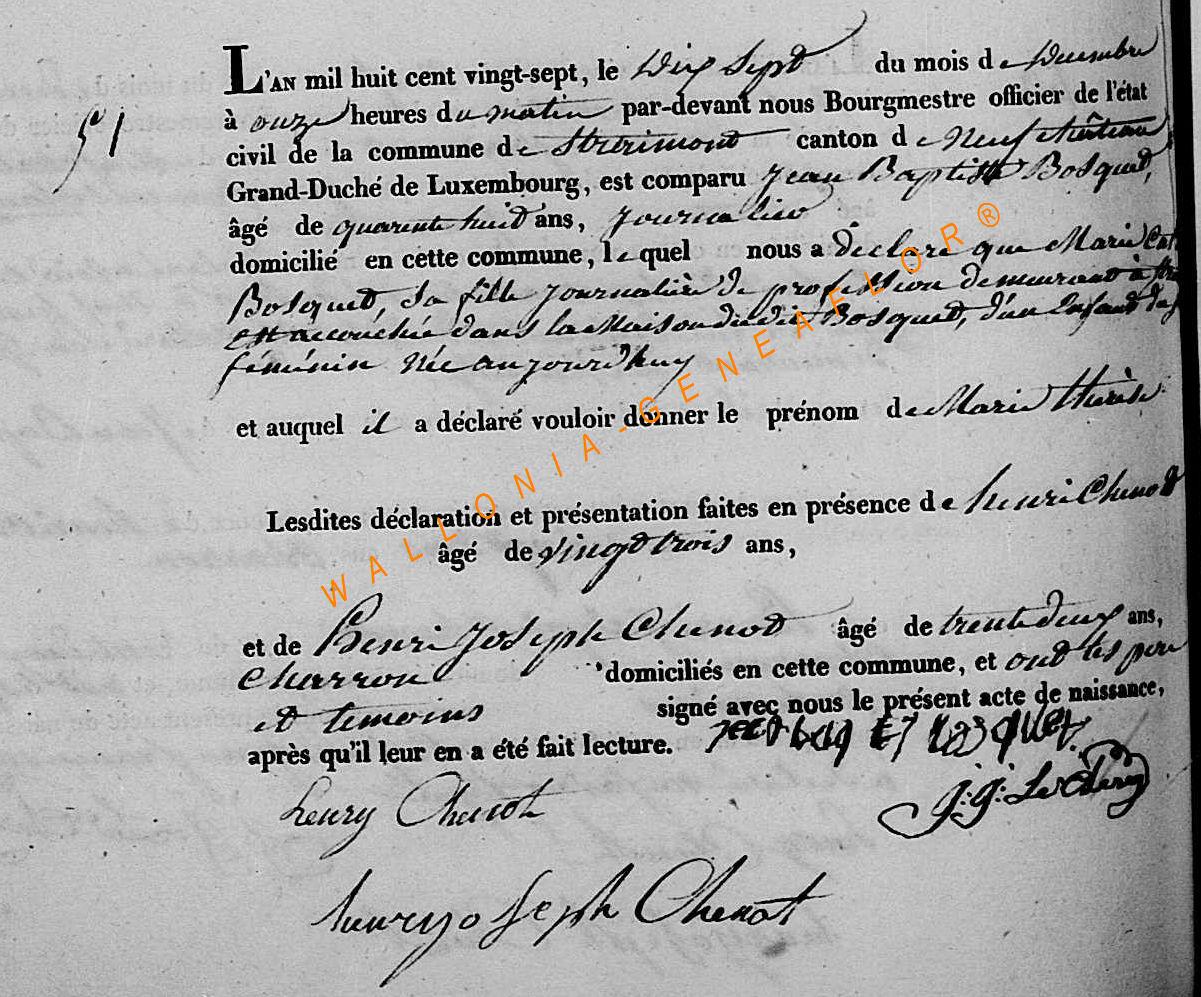 L'AN mil huit cent vingt-sept, le Dix Sept du mois de Decembre
51
à onze heures du matin par-devant nous Bourgmestre officier de l'état
civil de la commune de Straimont canton de Neufchâteau
Grand-Duché de Luxembourg, est comparu Jean Baptiste Bosquet,
âgé de quarente huit ans, Journalier
domicilié en cette commune, lequel nous a déclaré que Marie Cat
Bosquet, sa fille Journalière de profession demeurant à
est accouchée dans la Maison dudit Bosquet, d'un Enfant
féminin Née aujourd'huy
et auquel il a déclaré vouloir donner le prénom de Marie thérèse
Lesdites déclaration et présentation faites en présence de henri Chenot
âgé de vingt trois ans,
et de Henri Joseph Chenot âgé de trente deux ans,
charron domiciliés en cette commune, et ont les pere
et temoins signé avec nous le présent acte de naissance,
après qu'il leur en a été fait lecture.
henry Chenot
henry Joseph Chenot
WALLONIA-GENEAFLOR®